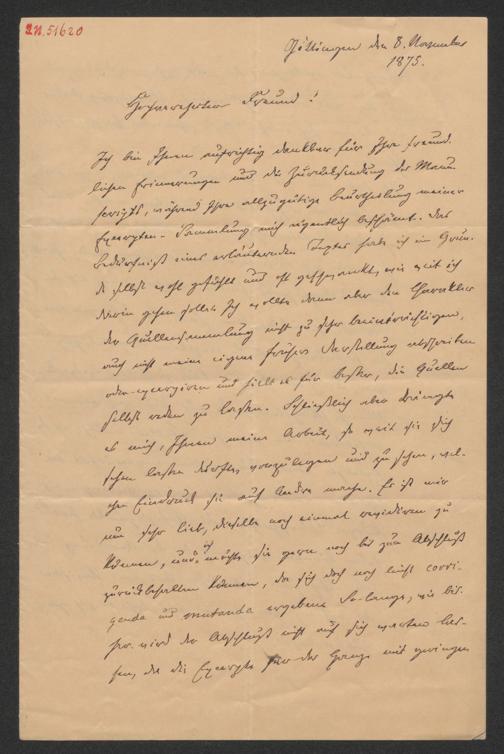 I.N. 51620
Göttingen den 8. November
1875.
Hochverehrter Freund!
Ich bin Ihnen aufrichtig dankbar für Ihre freund-
lichen Erinnerungen und die Zurücksendung des Manu-
scripts, während Ihre allzugütige Beurtheilung meiner
Excerpten-Sammlung mich eigentlich beschämt. Das
Bedürfniß eines erläuternden Textes habe ich im Grun-
de selbst wohl gefühlt und oft geschwankt, wie weit ich
darin gehen solle. Ich wollte dann aber den Charakter
der Quellensammlung nicht zu sehr beeinträchtigen,
auch nicht meine eigene frühere Darstellung abschreiben
oder excerpiren und hielt es für besser, die Quellen
selbst reden zu lassen. Schließlich aber drängte
es mich, Ihnen meine Arbeit, so weit sie sich
sehen lassen durfte, vorzulegen und zu sehen, wel-
chen Eindruck sie auf Andre mache. Es ist mir
nun sehr lieb, dieselbe noch einmal revidiren zu
können, und möchte sie gern noch bis zum Abschluß
zurückbehalten können, da sich doch noch leicht corri-
genda und mutanda ergeben. So lange, wie bis-
her wird der Abschluß nicht auf sich warten las-
sen, da die Excerpte der Ganze mit geringen